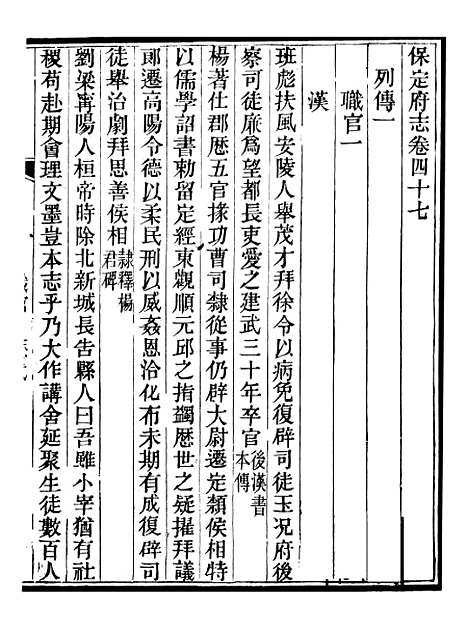 保定府志卷四十七
列傳一
職官一
漢
班彪扶風安陵人舉茂才拜徐令以病免復辟司徒玉况府後
察司徒廉爲望都長吏愛之建武三十年卒官後漢書本傳
楊著仕郡歷五官掾功曹司隸從事仍辟大尉遷定潁侯相特
以儒學詔書勅留定經東觀順元邱之指蠲歷世之疑擢拜議
郎遷高陽令德以柔民刑以威姦恩洽化布未期有成復辟司
徒舉治劇拜思善侯相隸釋楊君碑
劉梁寗陽人桓帝時除北新城長告縣人曰吾雖小宰猶有社
稷苟赴期會理文墨豈本志乎乃大作講舍延聚生徒數百人